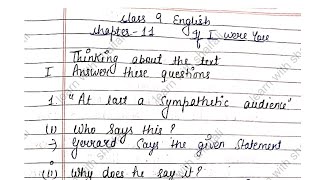 Class 9 English
Chapter-11 If I were You
Thinking about the text
I Answer these questions
1. "At last a sympathetic audience"
(i) Who says this?
→ Gerrard Says the given Statement
(ii) Why does he say it?